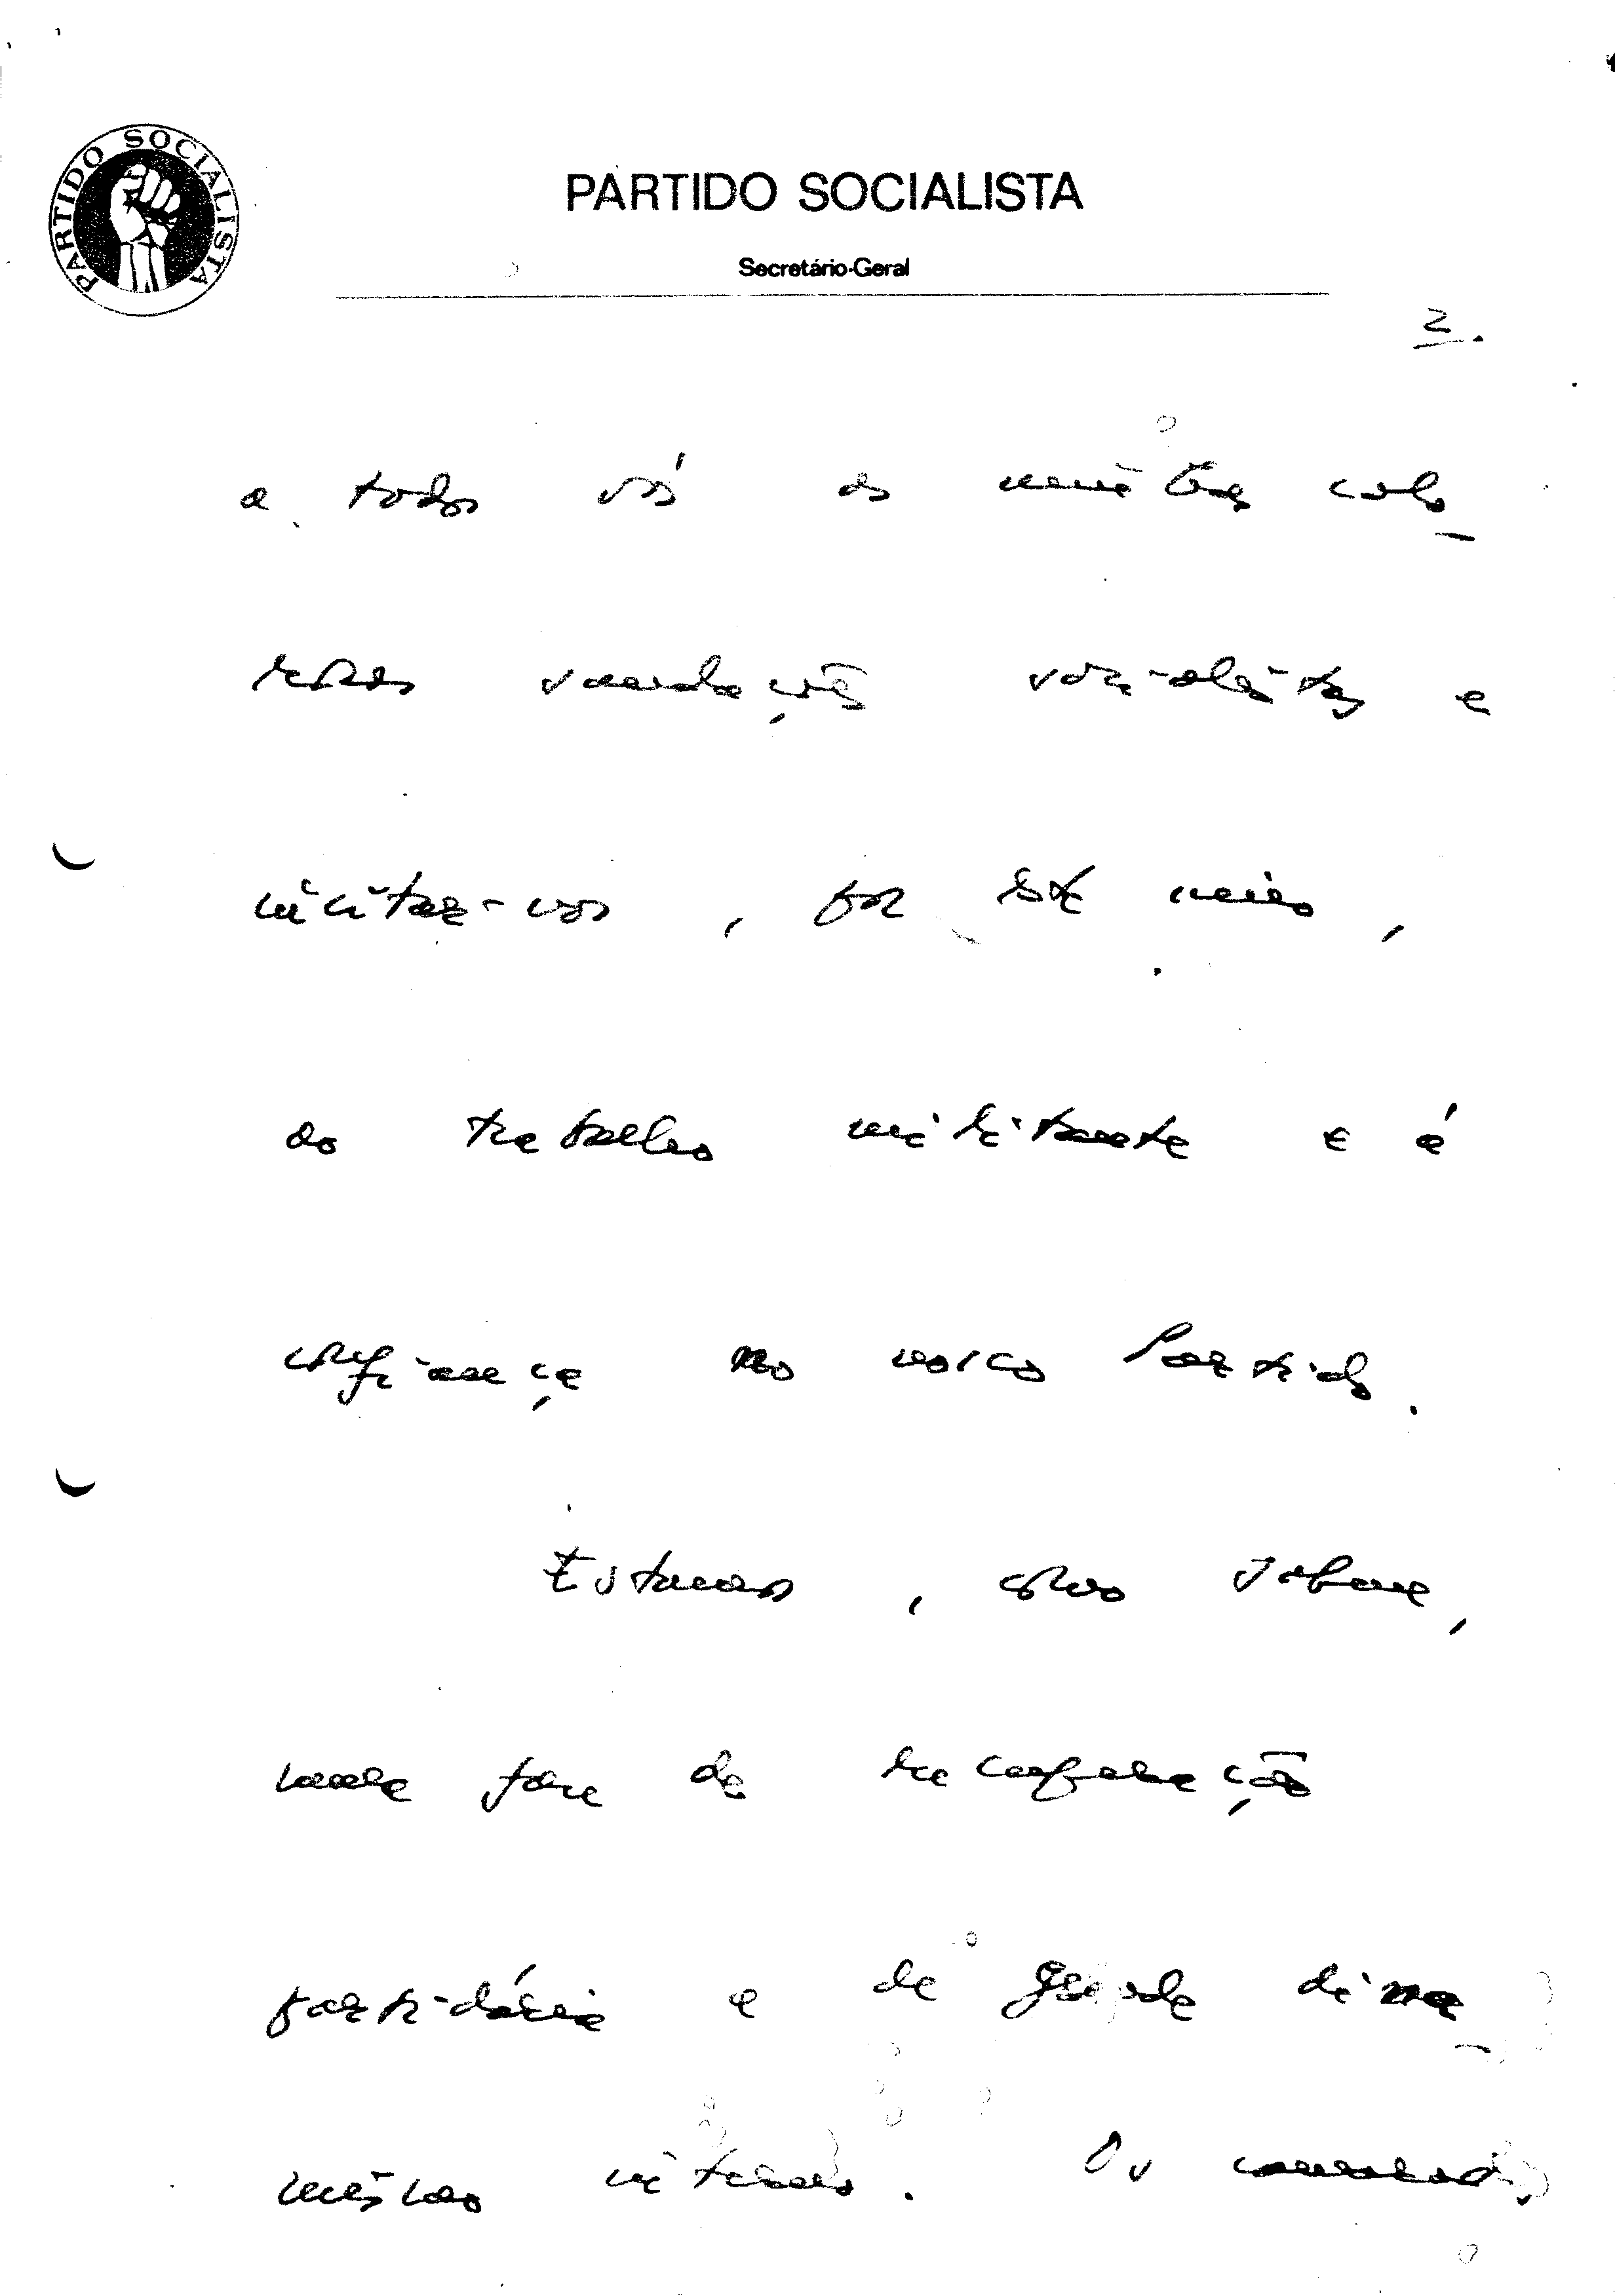 PARTIDO SOCIALISTA
PARTIDO SOCIALISTA
Secretário-Geral
2.
a todos vós as minhas calo_
rosas saudações socialistas e
incitar-vos, por este meio,
ao trabalho militante e à
confiança no nosso Partido.
Estamos, como sabem,
numa fase de
partidária e de grande dina_
mismo interno. Os camaradas